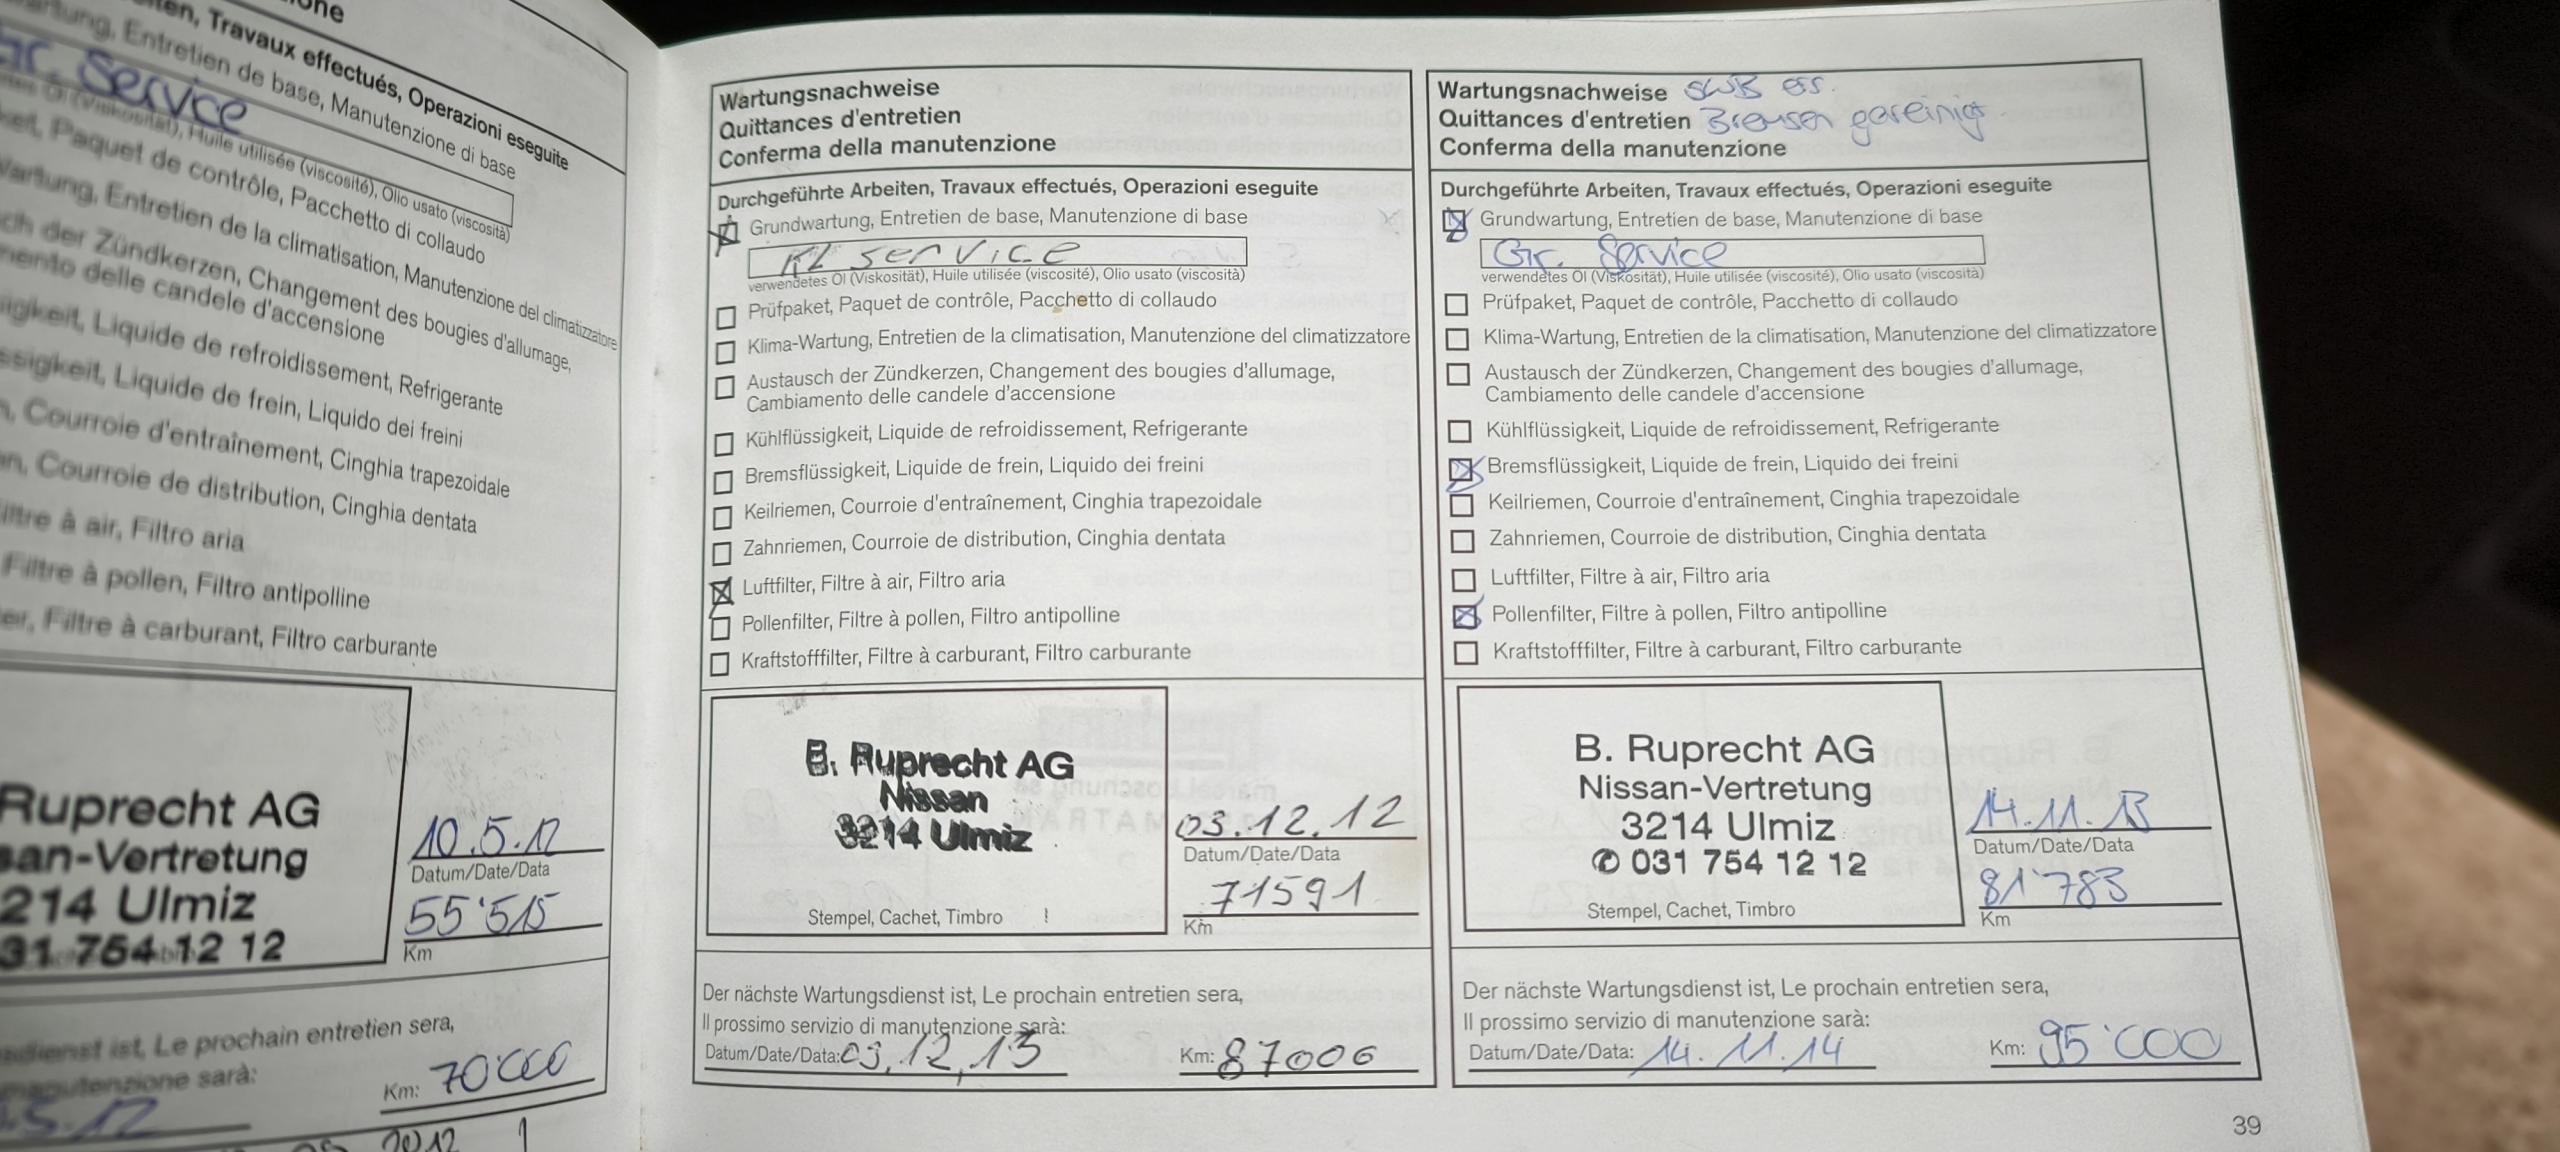 Travaux effectués, Operazioni eseguite
Entretien de base, Manutenzione di base
Gr. Service
Huile utilisée (viscosité), Olio usato (viscosità)
Paquet de contrôle, Pacchetto di collaudo
Wartung, Entretien de la climatisation, Manutenzione del climatizzatore
der Zündkerzen, Changement des bougies d'allumage,
delle candele d'accensione
Liquide de refroidissement, Refrigerante
Liquide de frein, Liquido dei freini
Courroie d'entraînement, Cinghia trapezoidale
Courroie de distribution, Cinghia dentata
Filtre à air, Filtro aria
Filtre à pollen, Filtro antipolline
Filtre à carburant, Filtro carburante
Ruprecht AG
san-Vertretung
214 Ulmiz
31 754 12 12
10.5.12
Datum/Date/Data
55'515
Km
ist, Le prochain entretien sera,
manutenzione sarà:
Km: 70'000
2012
Wartungsnachweise
Quittances d'entretien
Conferma della manutenzione
Durchgeführte Arbeiten, Travaux effectués, Operazioni eseguite
Grundwartung, Entretien de base, Manutenzione di base
Kl service
verwendetes Öl (Viskosität), Huile utilisée (viscosité), Olio usato (viscosità)
Prüfpaket, Paquet de contrôle, Pacchetto di collaudo
Klima-Wartung, Entretien de la climatisation, Manutenzione del climatizzatore
Austausch der Zündkerzen, Changement des bougies d'allumage,
Cambiamento delle candele d'accensione
Kühlflüssigkeit, Liquide de refroidissement, Refrigerante
Bremsflüssigkeit, Liquide de frein, Liquido dei freini
Keilriemen, Courroie d'entraînement, Cinghia trapezoidale
Zahnriemen, Courroie de distribution, Cinghia dentata
Luftfilter, Filtre à air, Filtro aria
Pollenfilter, Filtre à pollen, Filtro antipolline
Kraftstofffilter, Filtre à carburant, Filtro carburante
B. Ruprecht AG
Nissan
3214 Ulmiz
Stempel, Cachet, Timbro
03.12.12
Datum/Date/Data
71591
Km
Der nächste Wartungsdienst ist, Le prochain entretien sera,
Il prossimo servizio di manutenzione sarà:
Datum/Date/Data: 03.12.13 Km: 87006
Wartungsnachweise SWB ers.
Quittances d'entretien Bremsen gereinigt
Conferma della manutenzione
Durchgeführte Arbeiten, Travaux effectués, Operazioni eseguite
Grundwartung, Entretien de base, Manutenzione di base
Gr. Service
verwendetes Öl (Viskosität), Huile utilisée (viscosité), Olio usato (viscosità)
Prüfpaket, Paquet de contrôle, Pacchetto di collaudo
Klima-Wartung, Entretien de la climatisation, Manutenzione del climatizzatore
Austausch der Zündkerzen, Changement des bougies d'allumage,
Cambiamento delle candele d'accensione
Kühlflüssigkeit, Liquide de refroidissement, Refrigerante
Bremsflüssigkeit, Liquide de frein, Liquido dei freini
Keilriemen, Courroie d'entraînement, Cinghia trapezoidale
Zahnriemen, Courroie de distribution, Cinghia dentata
Luftfilter, Filtre à air, Filtro aria
Pollenfilter, Filtre à pollen, Filtro antipolline
Kraftstofffilter, Filtre à carburant, Filtro carburante
B. Ruprecht AG
Nissan-Vertretung
3214 Ulmiz
✆ 031 754 12 12
Stempel, Cachet, Timbro
14.11.13
Datum/Date/Data
81'783
Km
Der nächste Wartungsdienst ist, Le prochain entretien sera,
Il prossimo servizio di manutenzione sarà:
Datum/Date/Data: 14.11.14 Km: 95'000
39